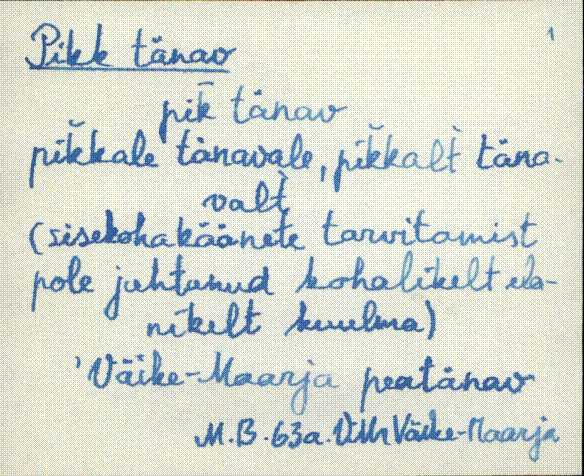 1
Pikk tänav
pik̆ tänav
pik̆kale tänavale, pik̆kalt̀ täna-
valt̀
(sisekohakäänete tarvitamist
pole juhtunud kohalikelt ela-
nikelt kuulma)
'Väike-Maarja peatänav
M.B. 63a. VMr Väike-Maarja